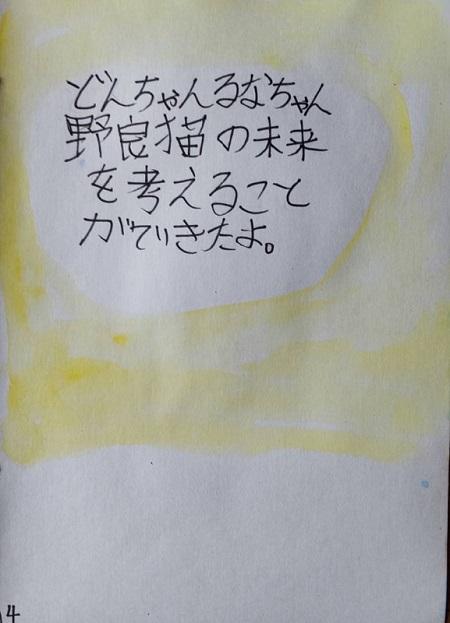 どんちゃんるなちゃん
野良猫の未来
を考えること
ができたよ。
14